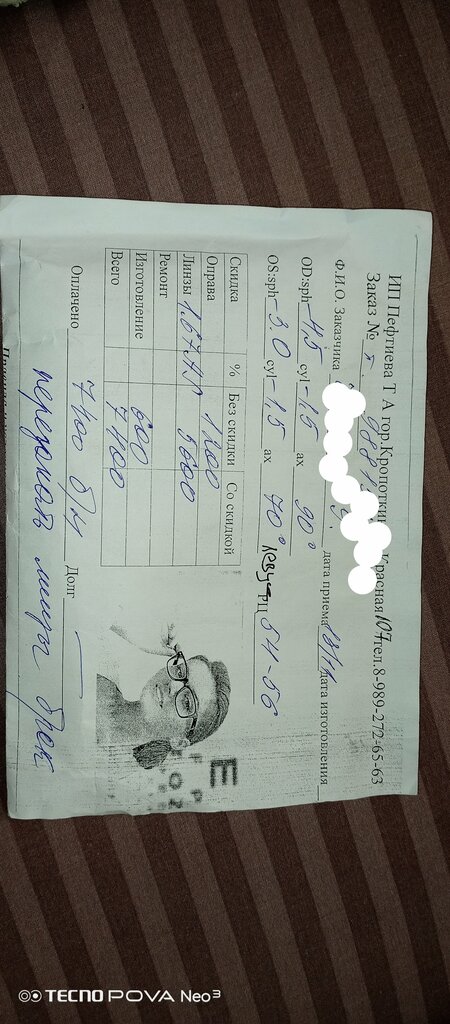 ИП Пефтиева Т А гор.Кропоткин Красная 107 тел.8-989-272-65-63
Заказ №
Ф.И.О. Заказчика дата приема 18/11 дата изготовления
OD:sph -4,5 cyl -1.5 ax 90°
OS:sph -3.0 cyl -1.5 ax 70° РЦ 54-56
Скидка % Без скидки Со скидкой
Оправа 1200
Линзы 1.67 AS 5600
Ремонт
Изготовление 600
Всего 7400
Оплачено 7400 б/н Долг —
линзы брак
E
TECNO POVA Neo 3